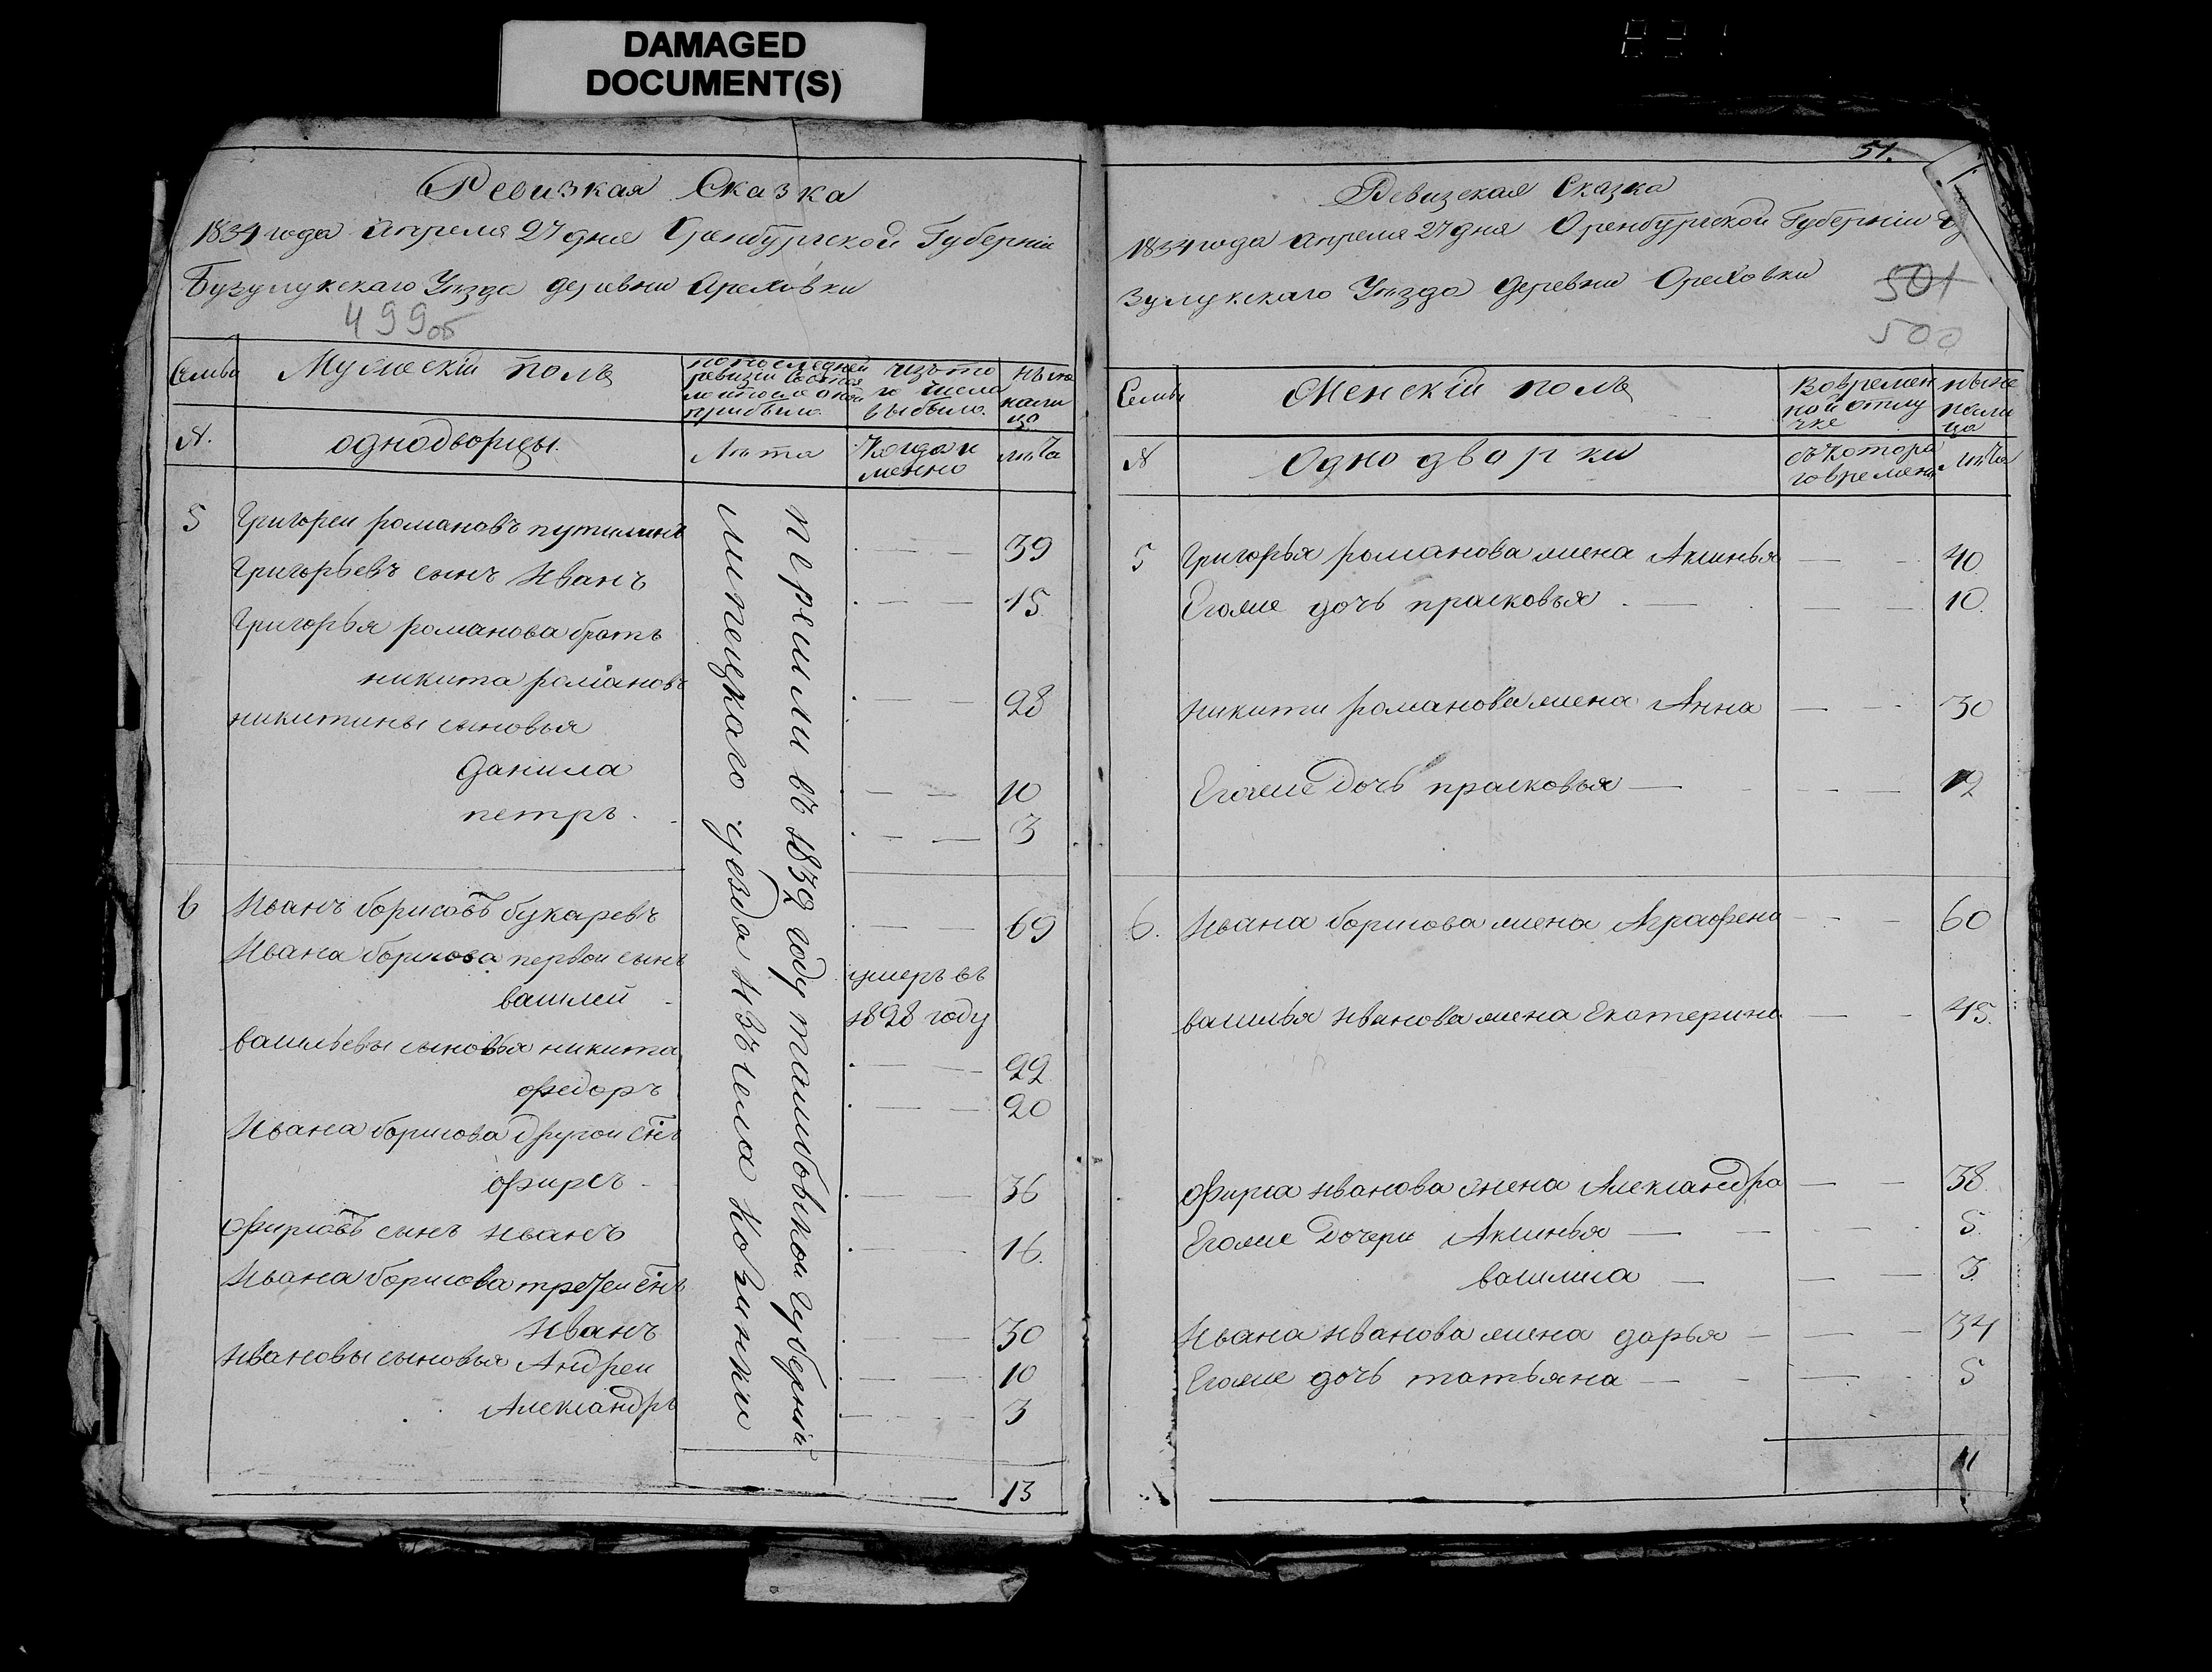 DAMAGED
DOCUMENT(S)
Ревизкая Сказка
1834 года апреля 27 дня Оренбургской Губерніи
Бузулукскаго Уѣзда деревни Ореховки
499об
Семьи
Мужескій полъ
по последней
ревизіи состоя
ло и после оной
прибыло.
изъ то
го числа
выбыло.
нынѣ
нали
цо
N.
однодворцы.
Лѣта
Когда и
менно
лѣта
5 Григореи романовъ путилинъ — — 39
Григорьевъ сынъ Иванъ — — 15
Григорья романова братъ
никита романовъ — — 28
никитины сыновья
данила — — 10
петръ — — 3
6 Иванъ борисовъ букаревъ — — 69
Ивана борисова первои сынъ
василей
умеръ въ
1828 году
васильевы сыновья никита — — 22
федоръ — — 20
Ивана борисова другои сiнъ
фирсъ — — 36
фирсовъ сынъ иванъ — — 16
Ивана борисова третеи сiнъ
Иванъ — — 30
Ивановы сыновья Андреи — — 10
Александръ — — 3
13
перешли въ 1832 году тамбовскои губерніи
липецкаго уезда изъ села
51.
Ревизская Сказка
1834 года апреля 27 дня Оренбургской Губерніи Бу
зулукскаго Уѣзда деревни Ореховки
501
500
Семьи
Женскій полъ
Во времен
ной отлу
чке
ныне
нали
цо
N
Однодворки
съ котора
го времени
Лѣта
5 Григорья романова жена Аксинья — — 40
Егоже дочь прасковья — — 10
никити романова жена Анна — — 30
Егоже дочь прасковья — — 12
6. Ивана борисова жена Аграфена — — 60
василья иванова жена Екатерина — — 45
фирса иванова жена Александра — — 38
Егоже дочери Аксинья — — 5
василиса — — 3
Ивана иванова жена дарья — — 34
Егоже дочь татьяна — — 5
11